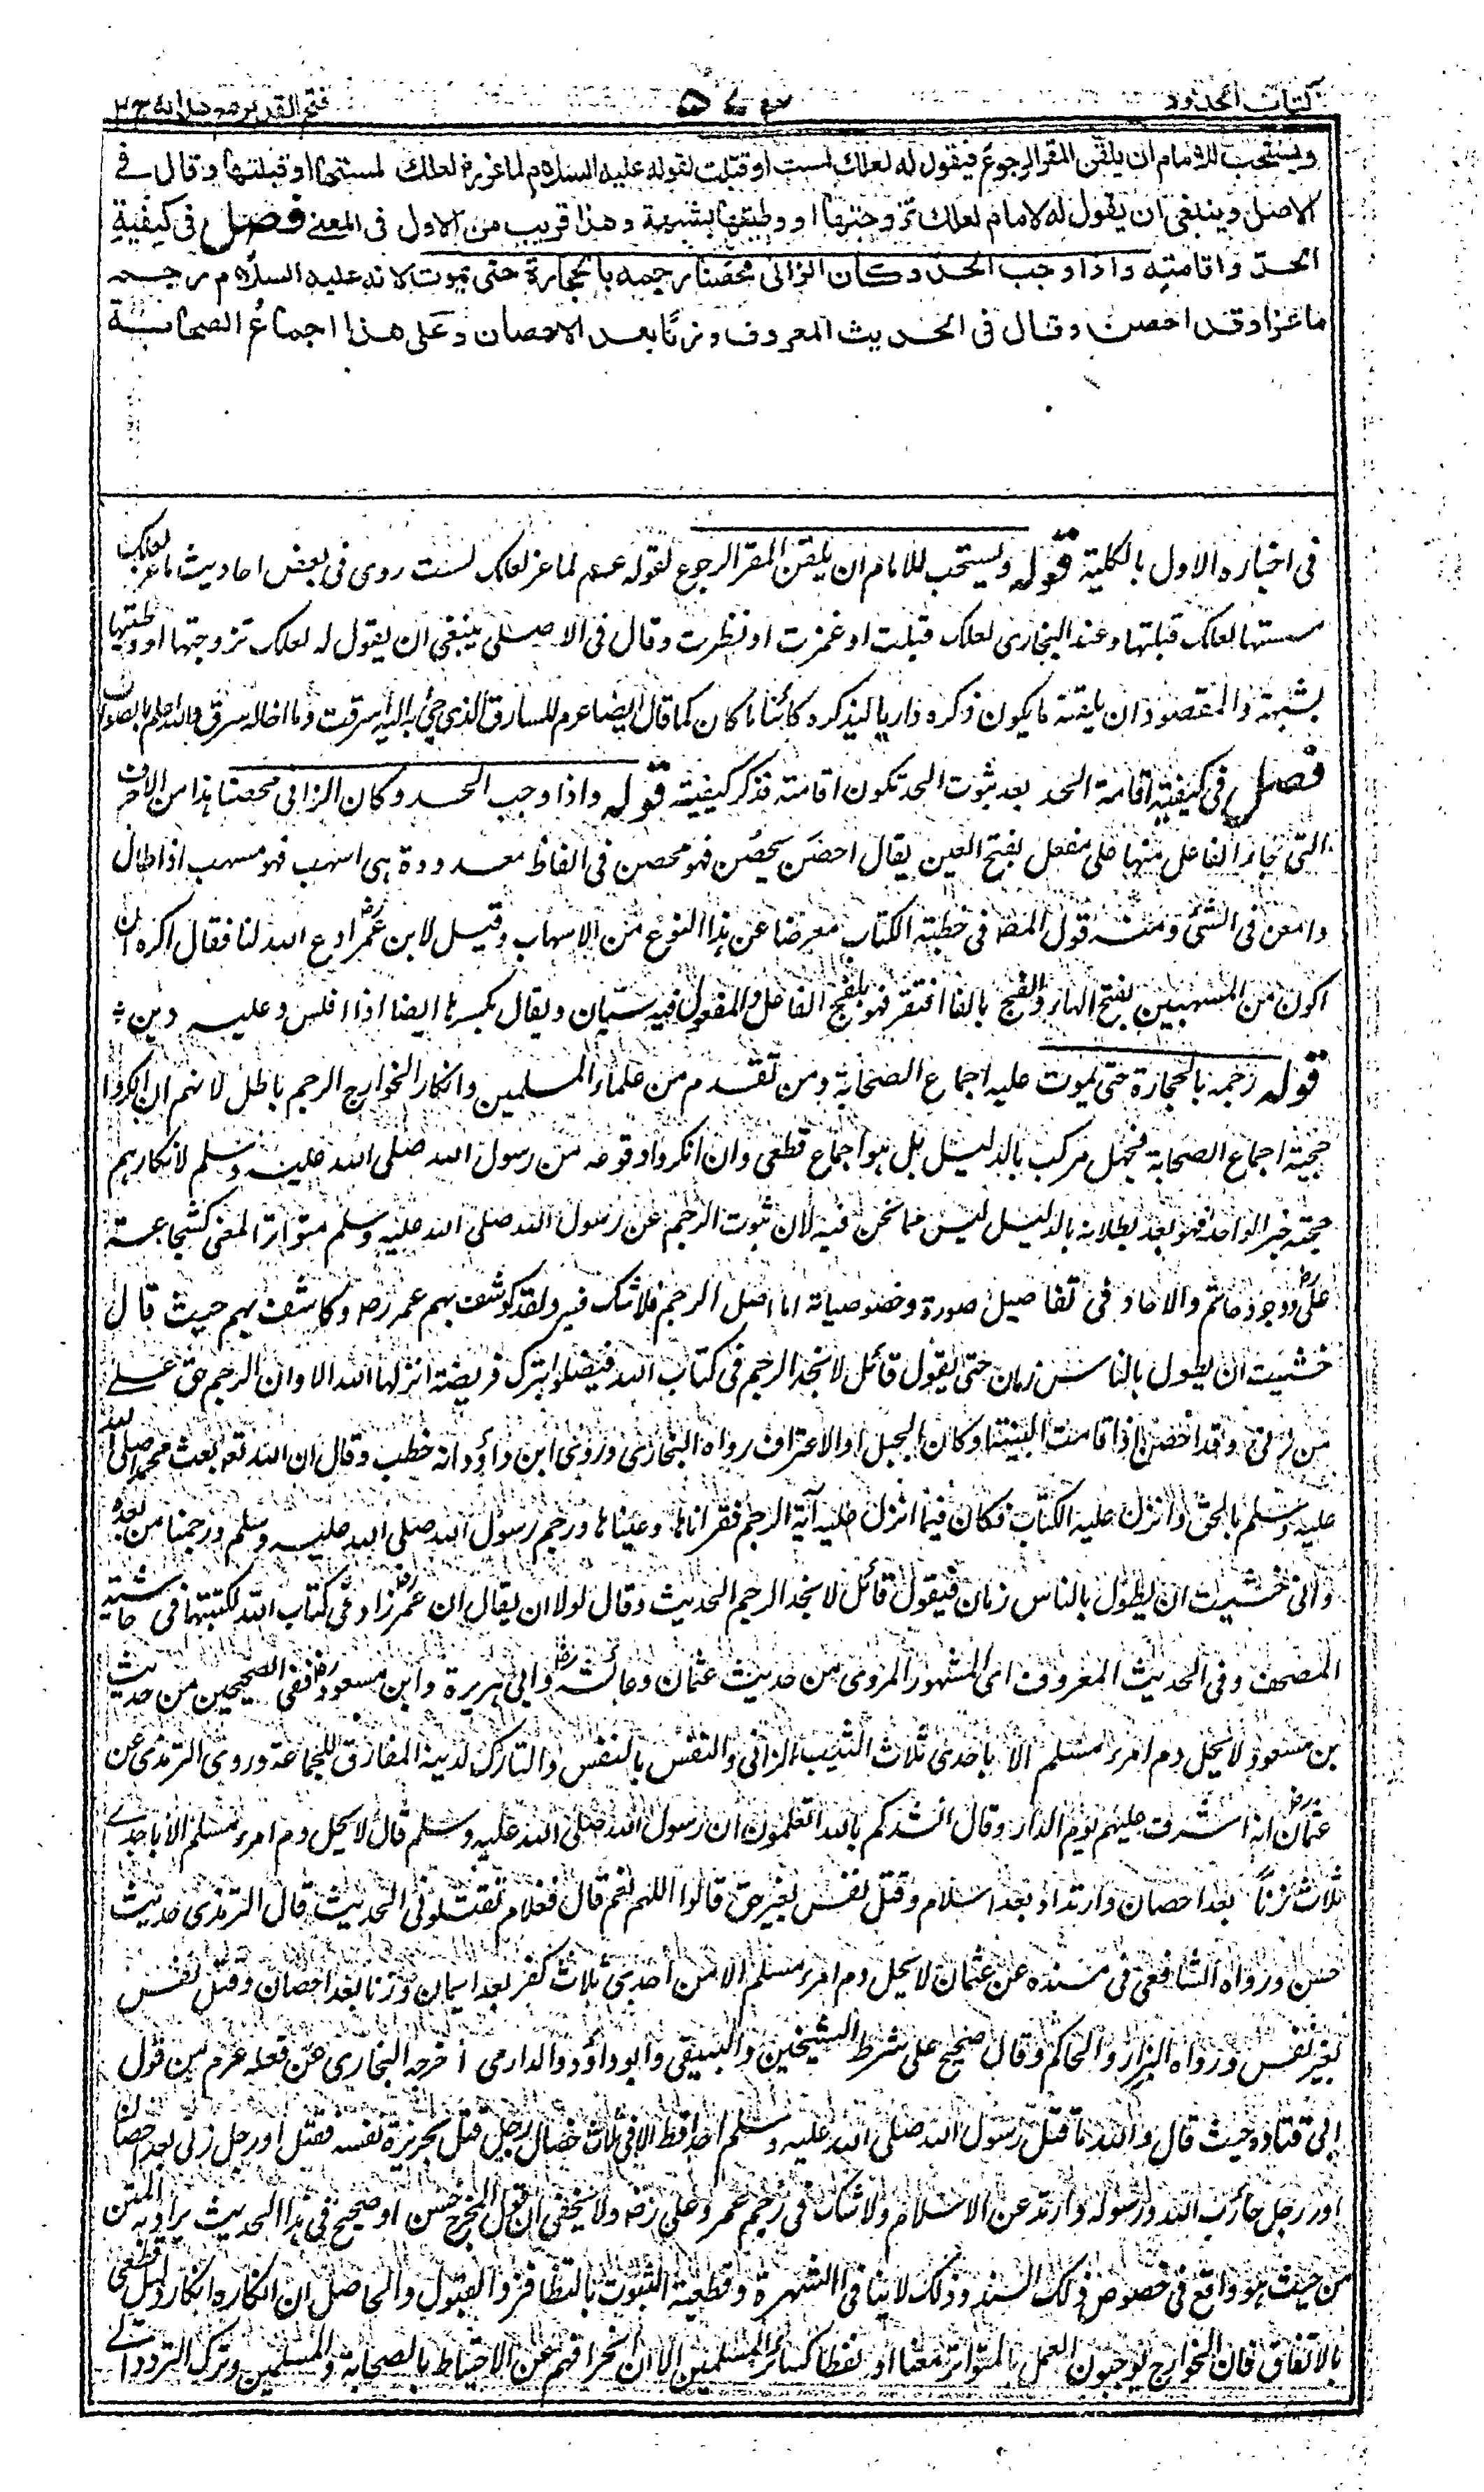 كتاب الحدود ٥٧٣ فتح القدير مع هدايه ج٢
ويستحب للامام ان يلقن المقر الرجوع فيقول له لعلك لمست او قبّلت لقوله عليه السلام لماعز لعلك لمستها او قبلتها وقال في
الاصل وينبغى ان يقول له لامام لعلك تزوجتها او وطيتها بشبهة وهذا قريب من الاول فى المعنى فصل فى كيفية
الحدّ واقامته واذا وجب الحد وكان الزانى محصنا رجمه بالحجارة حتى يموت لانه عليه السلام رجم
ماعزا وقد احصن وقال فى الحديث المعروف وزنًا بعد الاحصان وعلى هذا اجماعُ الصحابة
فى اخباره الاول بالكلية قوله ويستحب للامام ان يلقن المقر الرجوع لقوله عم لماعز لعلك لمست روى فى بعض احاديث ماعز لعلك
مستها لعلك قبلتها وعند البخارى لعلك قبلت او غمزت او نظرت وقال فى الاصل ينبغى ان يقول له لعلك تزوجتها او وطئتها
بشبهة والمقصود ان يلقنه ما يكون ذكره داريا ليذكره كائنا ما كان كما قال ايضا عم للسارق الذى جئ به اليه اسرقت وما اخاله سرق والله اعلم بالصواب
فصل فى كيفية اقامة الحد بعد ثبوت الحد تكون اقامته فذكر كيفيته قوله واذا وجب الحد وكان الزانى محصنا هذا من الاحرف
التى جاء الفاعل منها على مفعل بفتح العين يقال احصَن يحصُن فهو محصن فى الفاظ معدودة هى اسهب فهو مسهب اذا اطال
وامعن فى الشئ ومنه قول المصـ فى خطبة الكتاب معرضا عن هذا النوع من الاسهاب وقيل لابن عمرؓ ادع الله لنا فقال اكره ان
اكون من المسهبين بفتح الهاء والفج بالفا افتقر فهو ملفج الفاعل والمفعول فيه سيّان ويقال بكسرها ايضا اذا افلس وعليه دين
قوله رجمه بالحجارة حتى يموت عليه اجماع الصحابة ومن تقدم من علماء المسلمين وانكار الخوارج الرجم باطل لانهم ان انكروا
حجية اجماع الصحابة فجهل مركب بالدليل بل هو اجماع قطعى وان انكروا وقوعه من رسول الله صلى الله عليه وسلم لانكارهم
حجيته خبر الواحد فهو بعد بطلانه بالدليل ليس مما نحن فيه لان ثبوت الرجم عن رسول الله صلى الله عليه وسلم متواتر المعنى كشجاعة
علىؓ وجود حاتم والاحاد فى تفاصيل صورة وخصوصياته اما اصل الرجم فلا شك فيه ولقد كوشف بهم عمر رضـ وكاشف بهم حيث قال
خشيت ان يطول بالناس زمان حتى يقول قائل لا نجد الرجم فى كتاب الله فيضلوا بترك فريضة انزلها الله الا وان الرجم حق على
من زنى وقد احصن اذا قامت البينة او كان الحبل او الاعتراف رواه البخارى وروى ابن داؤد انه خطب وقال ان الله تعـ بعث محمدا صلى الله
عليه وسلم بالحق وانزل عليه الكتاب فكان فيما انزل عليه آية الرجم فقراناها وعيناها ورجم رسول الله صلى الله عليه وسلم ورجمنا من بعده
وانى خشيت ان يطول بالناس زمان فيقول قائل لا نجد الرجم الحديث وقال لولا ان يقال ان عمرؓ زاد فى كتاب الله لكتبتها فى حاشية
المصحف وفى الحديث المعروف اى المشهور المروى من حديث عثمان وعائشةؓ وابى هريرة وابن مسعودؓ ففى الصحيحين من حديث
بن مسعود لا يحل دم امرء مسلم الا باحدى ثلاث الثيب الزانى والنفس بالنفس والتارك لدينه المفارق للجماعة وروى الترمذى عن
عثمانؓ انه اشرف عليهم يوم الدار وقال انشدكم بالله اتعلمون ان رسول الله صلى الله عليه وسلم قال لا يحل دم امرء مسلم الا باحدے
ثلاث زناً بعد احصان وارتداد بعد اسلام وقتل نفس بغير حق قالوا اللهم نعم قال فعلام تقتلونى الحديث قال الترمذى حديث
حسن ورواه الشافعى فى مسنده عن عثمان لا يحل دم امرء مسلم الا من احدى ثلاث كفر بعد ايمان وزنا بعد احصان وقتل نفس
بغير نفس ورواه البزار والحاكم وقال صحيح على شرط الشيخين والبيهقى وابو داؤد والدارمى اخرجه البخارى عن فعله عم من قول
ابى قتادة حيث قال والله ما قتل رسول الله صلى الله عليه وسلم احدا قط الا فى ثلاث خصال رجل قتل بجريرة نفسه فقتل او رجل زنى بعد احصان
او رجل حارب الله ورسوله وارتد عن الاسلام ولا شك فى رجم عمر وعلى رضـ ولا يخفى ان قول المخرج حسن او صحيح فى هذا الحديث يراد به المتن
من حيث هو واقع فى خصوص ذلك السند وذلك لا ينافى الشهرة وقطعية الثبوت بالتظافر والقبول والحاصل ان انكاره انكار دليل قطعى
بالاتفاق فان الخوارج يوجبون العمل بالمتواتر معنا او لفظا كسائر المسلمين الا ان انحرافهم عن الاحتياط بالصحابة والمسلمين وترك التردد الى